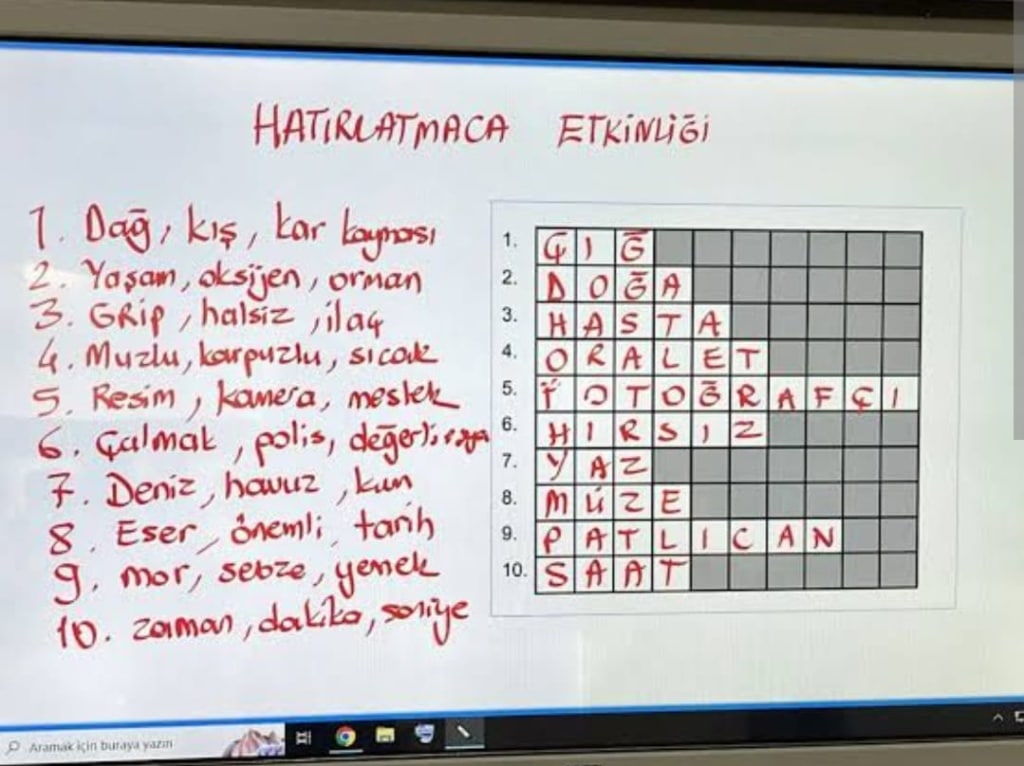 HATIRLATMACA ETKİNLİĞİ
1. Dağ, kış, kar kayması
2. Yaşam, oksijen, orman
3. GRİP, halsiz, ilaç
4. Muzlu, karpuzlu, sıcak
5. Resim, kamera, meslek
6. Çalmak, polis, değerli eşya
7. Deniz, havuz, kum
8. Eser, önemli, tarih
9. mor, sebze, yemek
10. zaman, dakika, saniye
1. ÇIĞ
2. DOĞA
3. HASTA
4. ORALET
5. FOTOĞRAFÇI
6. HIRSIZ
7. YAZ
8. MÜZE
9. PATLICAN
10. SAAT
Aramak için buraya yazın